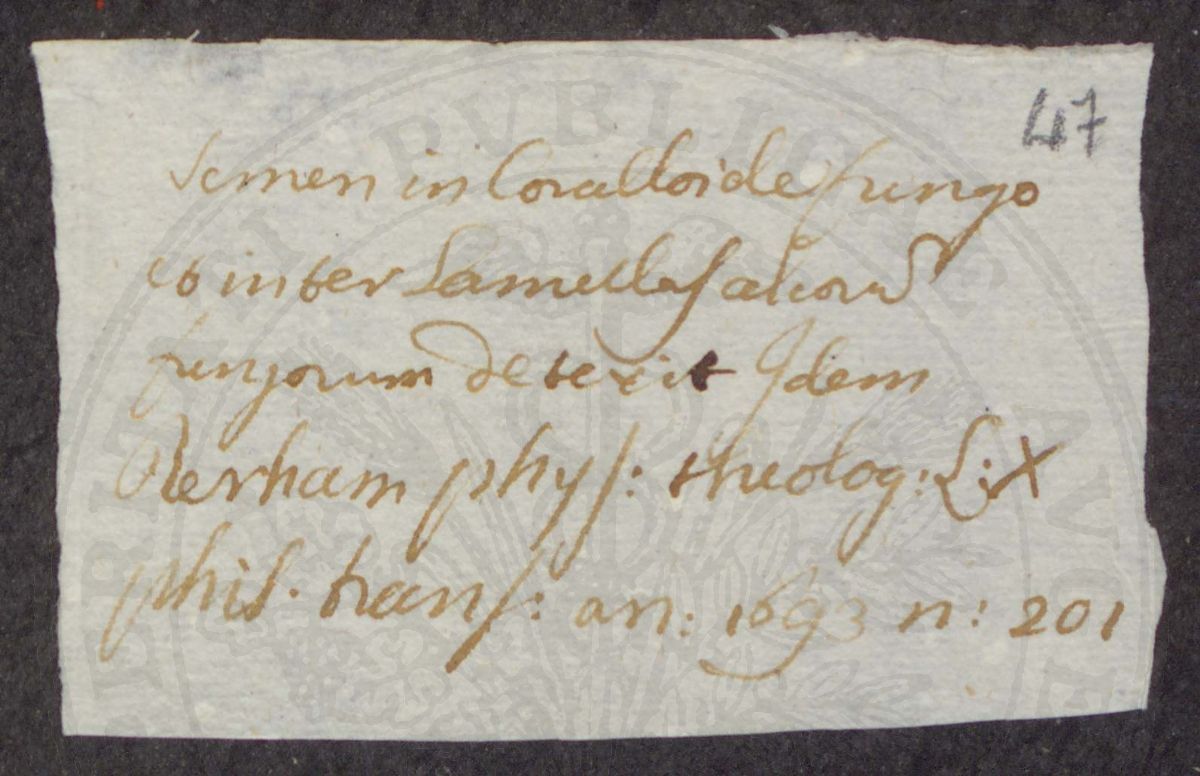 47
Semen in Coralloide fungo
et inter Lamellas aliorũ
fungorum detexit Idem
Derham phys: theolog: L: X
phil. trans: an: 1693 n: 201